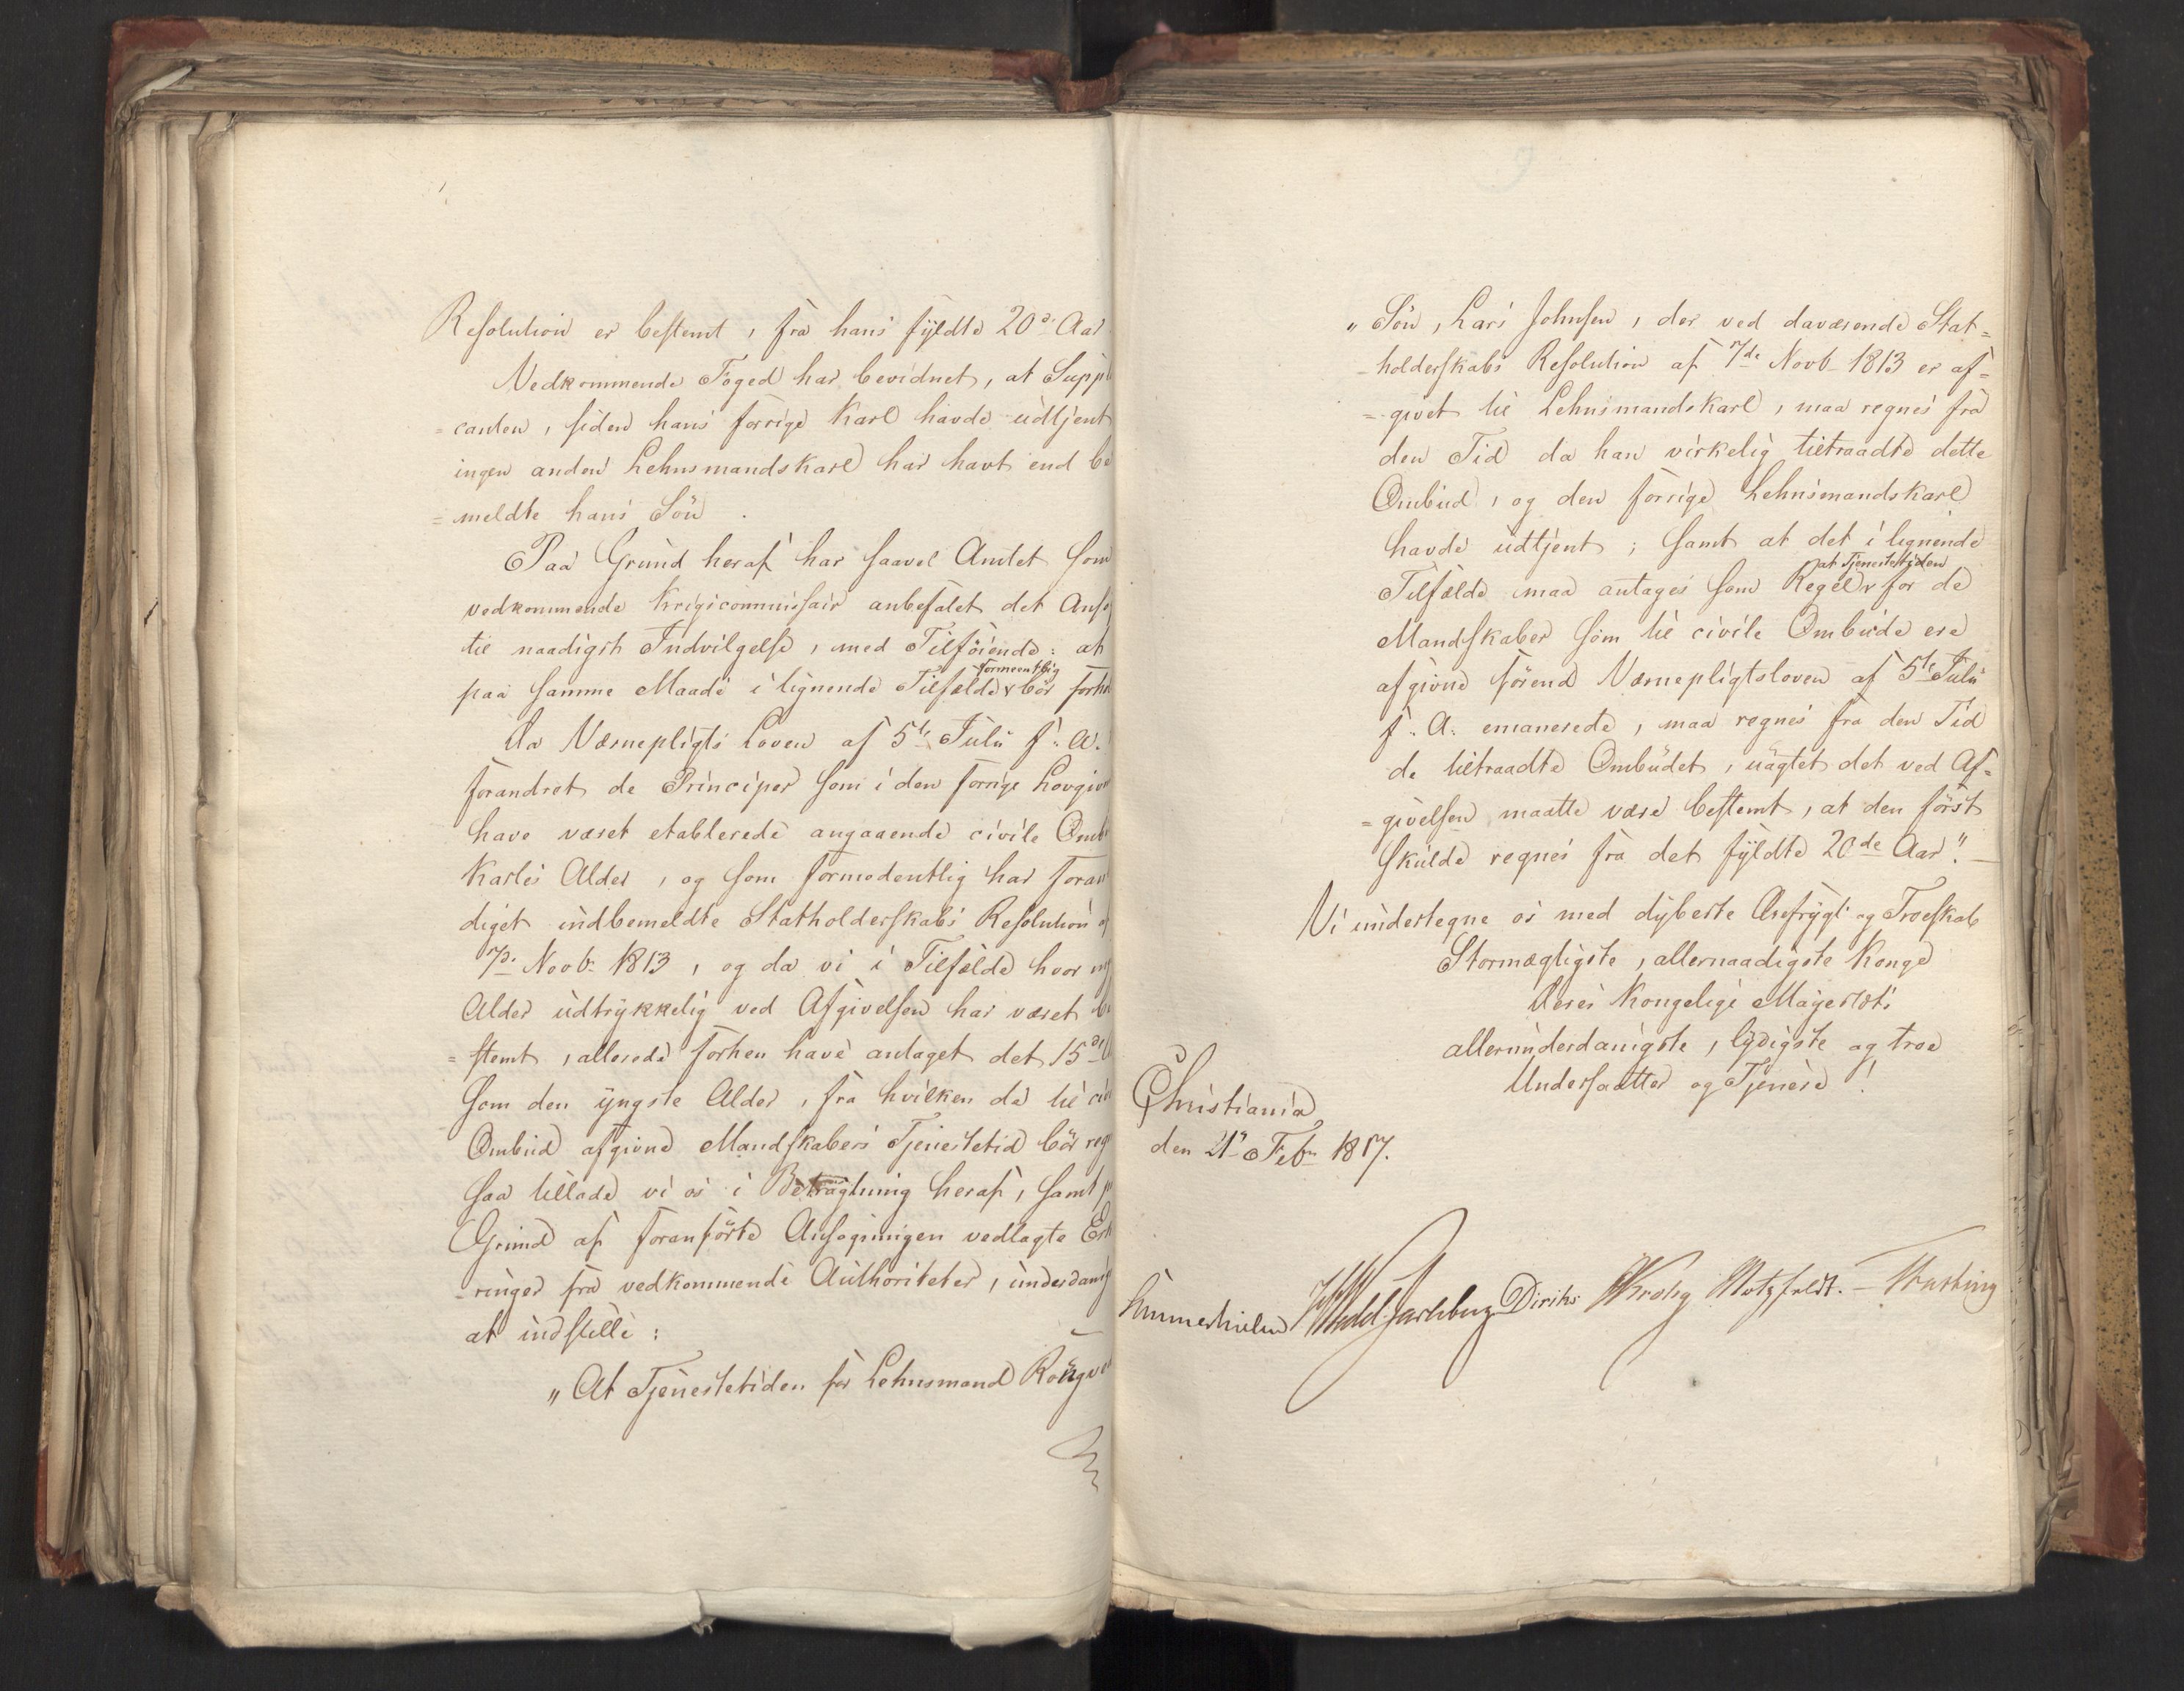 Resolution er bestemt, fra hans fyldte 20de Aar
Vedkommende Foged har bevidnet, at Suppli
=canten, siden hans forrige Karl havde udtjent
ingen anden Lehnsmandskarl har havt end be
=meldte hans Sön.
Paa Grund heraf har saavel Amtet som
vedkommende Krigscommissair anbefalet det Ansø
til naadigst Indvilgelse, med Tilföiende: at
formeentlig
paa samme Maade i lignende Tilfælde bör forho
Da Værnepligts Loven af 5te Julii f. A.
forandret de Principer som i den forrige Lovgivn
have været etablerede angaaende civile Omb
Karles Alder, og som formodentlig har foran
diget indbemeldte Statholderskabs Resolution af
7de Novb. 1813, og da vi i Tilfælde hvor
Alder udtrykkelig ved Afgivelsen har været be
=stemt, allerede forhen have antaget det 15de
som den yngste Alder, fra hvilken de til civ
Ombud afgivne Mandskabers Tjenestetid bör reg
saa tillade vi os i Betragtning heraf, samt
Grund af foranförte Ansøgningen vedlagte Erk
=ringer fra vedkommende Authoriteter, underdanig
at indstille:
„At Tjenestetiden for Lehnsmand
„Sön, Lars Johnsen, der ved daværende Stat=
=holderskabs Resolution af 7de Novb 1813 er af=
=givet til Lehnsmandskarl, maa regnes fra
den Tid da han virkelig tiltraadte dette
Ombud, og den forrige Lehnsmandskarl
havde udtjent; samt at det i lignende
at Tjenestetiden
Tilfælde maa antages som Regel for de
Mandskaber som til civile Ombude ere
afgivne förend Værnepligtsloven af 5te Julii
f. A. emanerede, maa regnes fra den Tid
de tiltraadte Ombudet, uagtet det ved Af=
=givelsen maatte være bestemt, at den först
skulde regnes fra det fyldte 20de Aar." —
Vi undertegne os med dybeste Ærefrygt og Troeskab
Stormægtigste, allernaadigste Konge
Deres Kongelige Majestæts
allerunderdanigste, lydigste og troe
Undersaatter og Tjenere!
Christiania
den 21de Febr 1817.
Sommerhielm Wedel Jarlsberg Diriks Krohg Motzfeldt. —